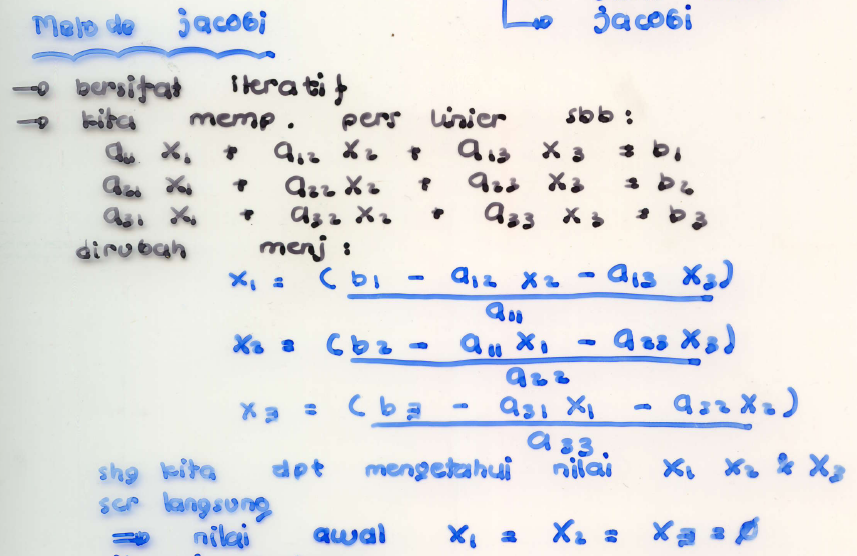 ↳ jacobi
Metode jacobi
→ bersifat iteratif
→ kita memp. pers linier sbb:
a₁₁ x₁ + a₁₂ x₂ + a₁₃ x₃ = b₁
a₂₁ x₁ + a₂₂ x₂ + a₂₃ x₃ = b₂
a₃₁ x₁ + a₃₂ x₂ + a₃₃ x₃ = b₃
dirubah menj:
x₁ = (b₁ - a₁₂ x₂ - a₁₃ x₃)
a₁₁
x₂ = (b₂ - a₁₁ x₁ - a₂₃ x₃)
a₂₂
x₃ = (b₃ - a₃₁ x₁ - a₃₂ x₂)
a₃₃
shg kita dpt mengetahui nilai x₁ x₂ & x₃
scr langsung
⇒ nilai awal x₁ = x₂ = x₃ = ∅